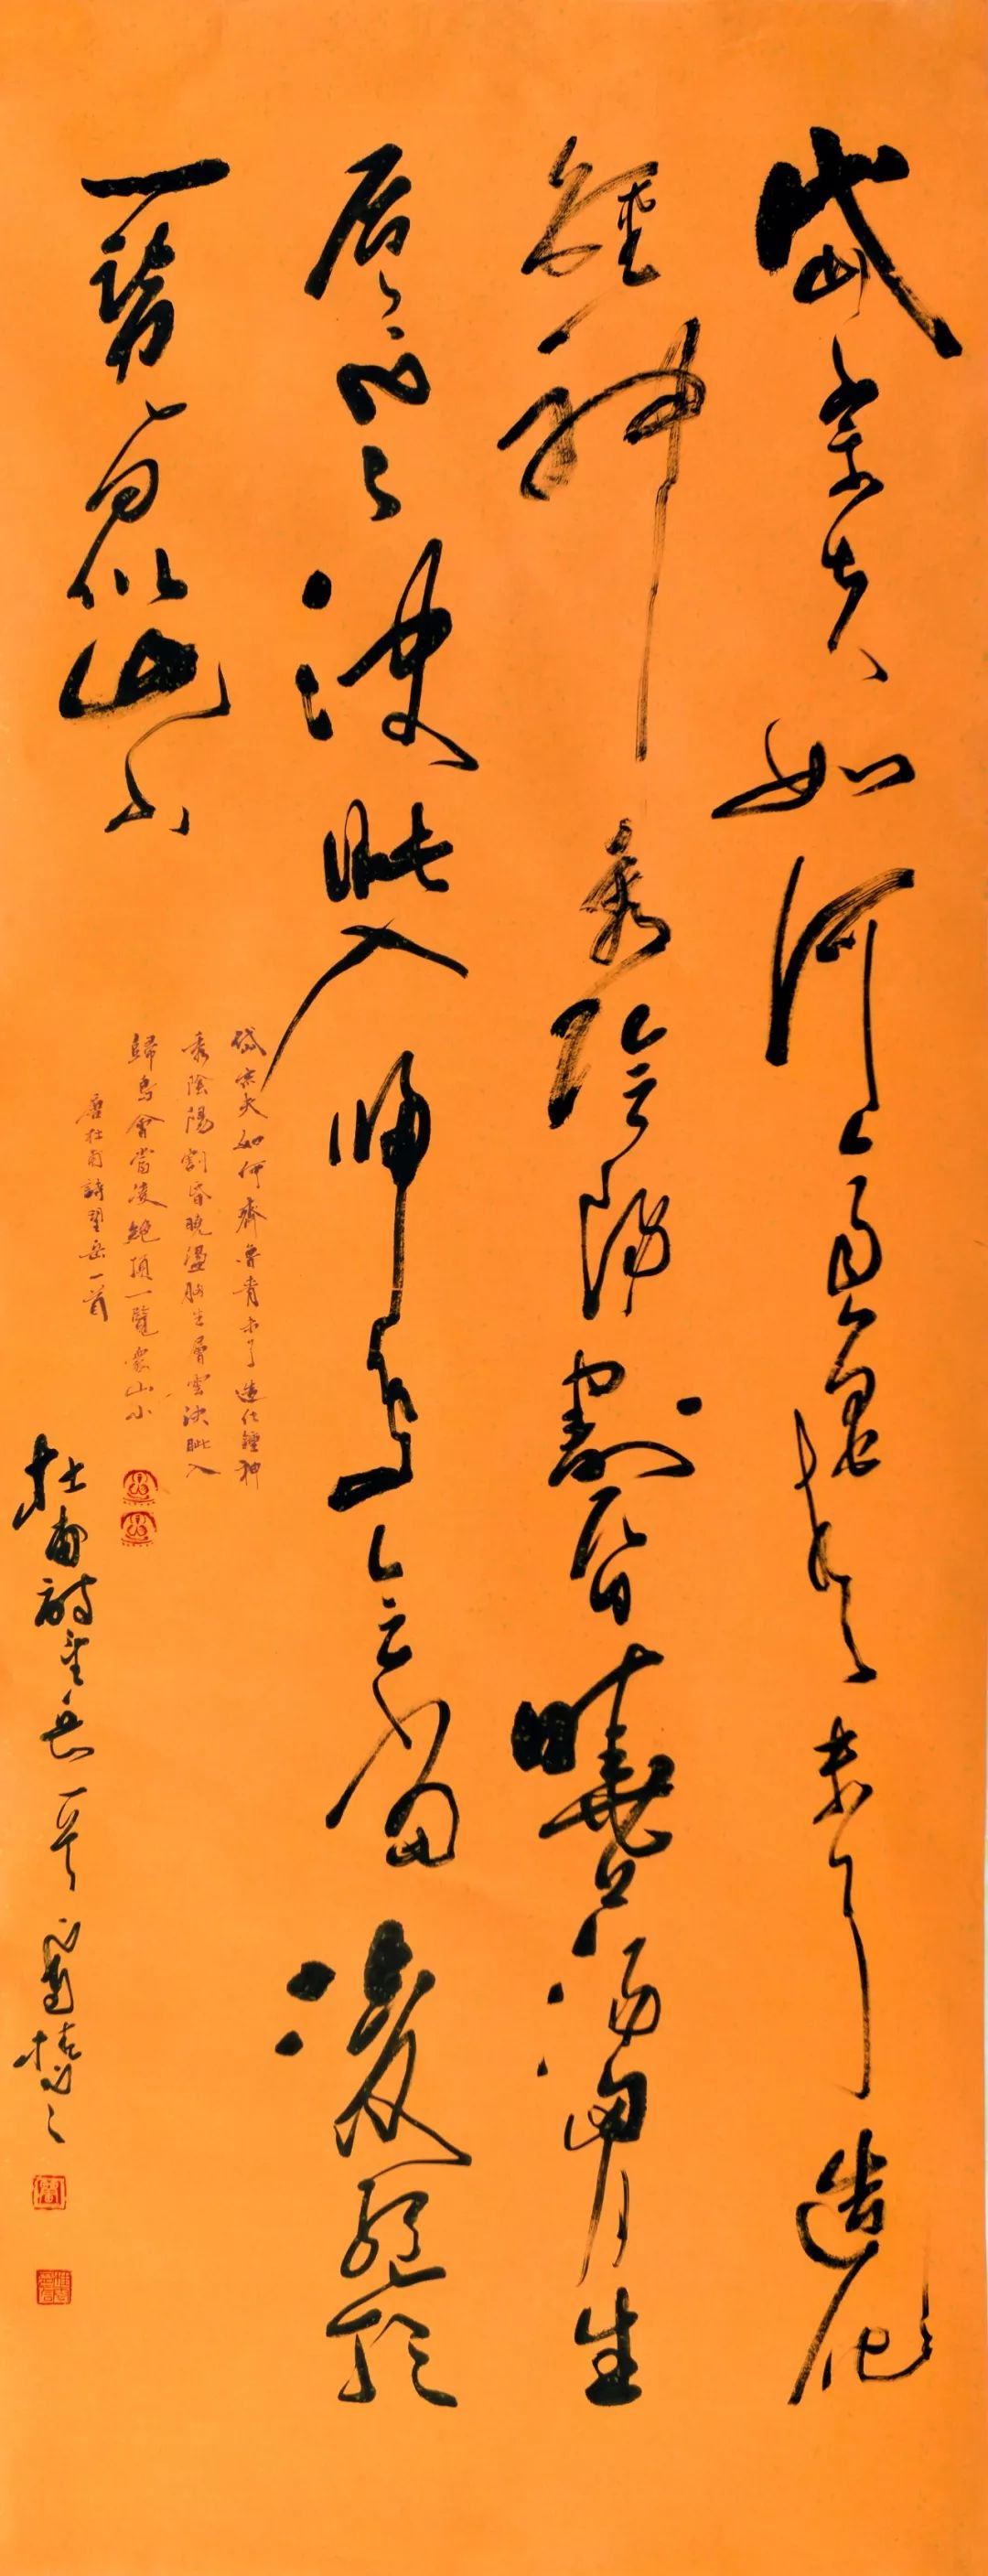 岱宗夫如何齊魯青未了造化
鍾神秀陰陽割昏曉盪胸生
層雲決眥入歸鳥會當凌絕頂
一覽眾山小
岱宗夫如何齊魯青未了造化鍾神
秀陰陽割昏曉盪胸生層雲決眥入
歸鳥會當凌絕頂一覽眾山小
唐杜甫詩望岳一首
杜甫詩望岳一首